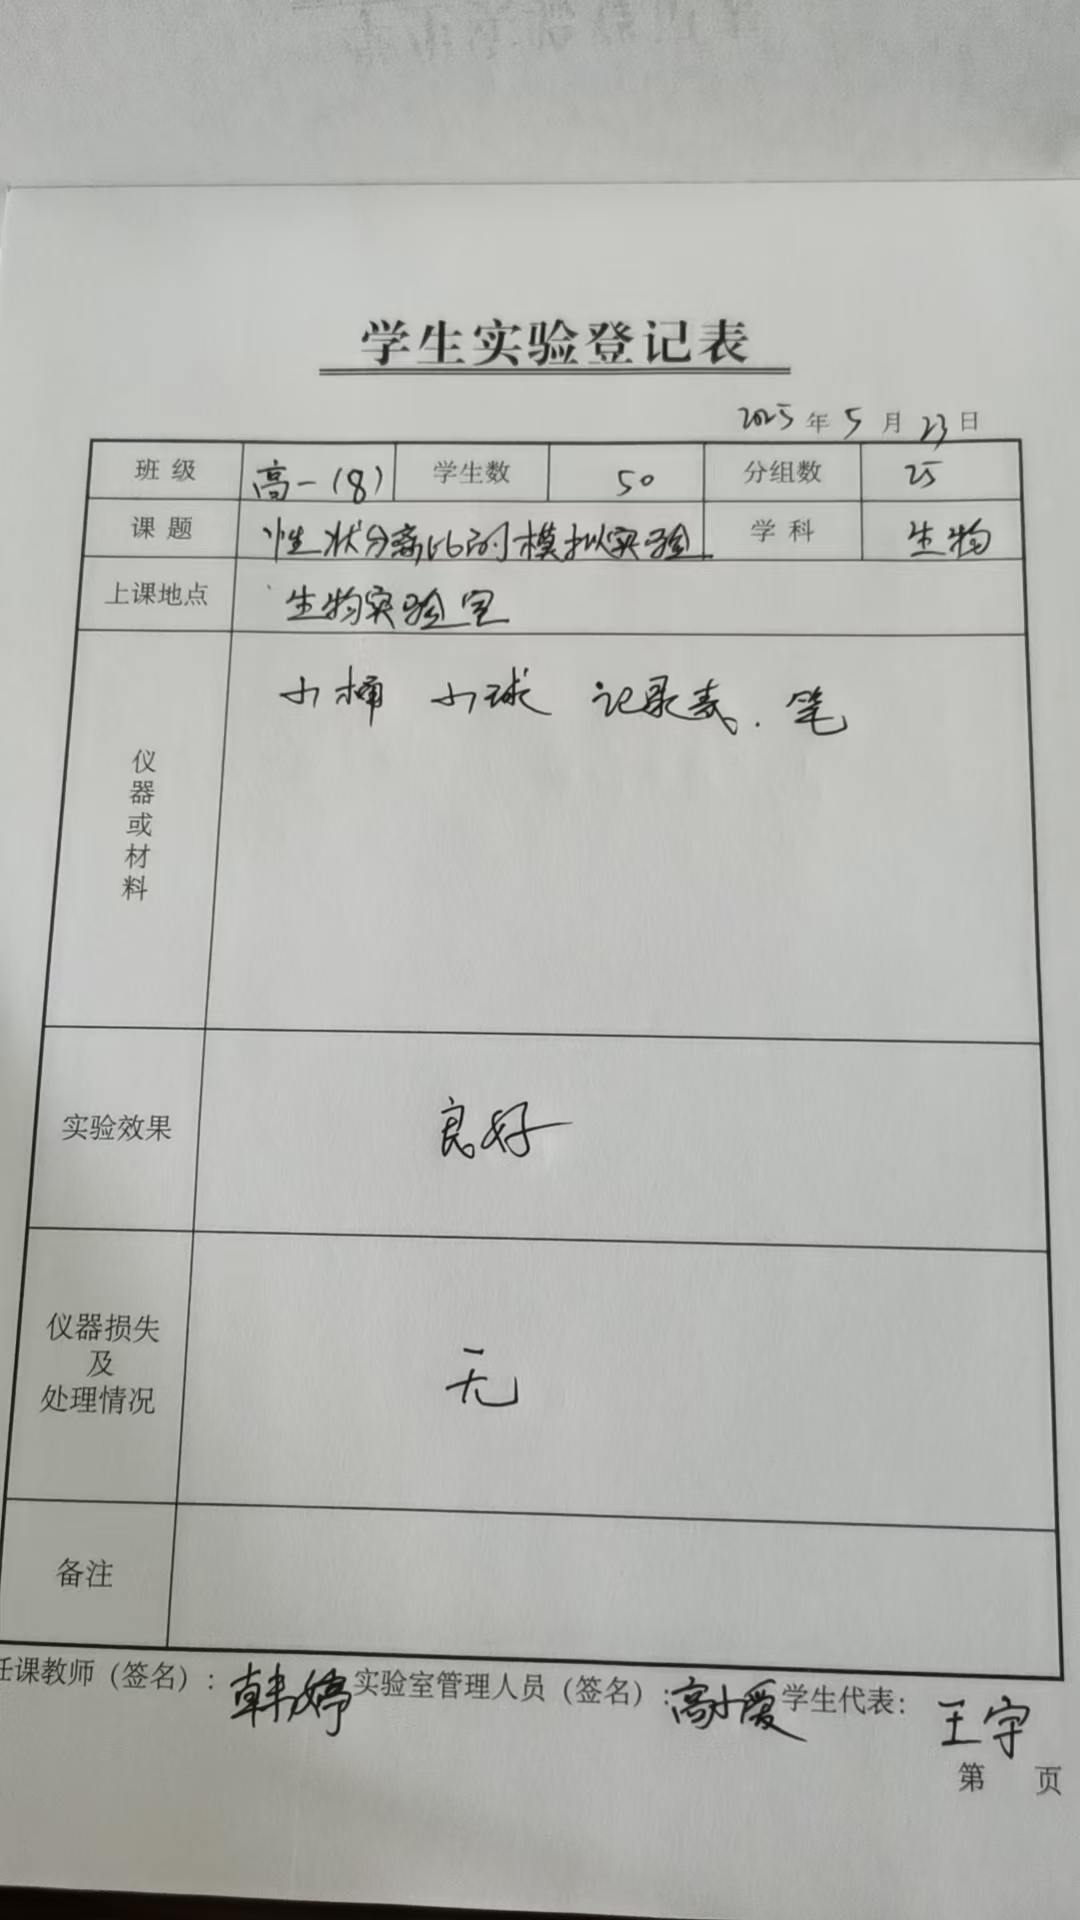 学生实验登记表
2025年5月23日
班级 高一(8) 学生数 50 分组数 25
课题 性状分离比的模拟实验 学科 生物
上课地点 生物实验室
仪器或材料 小桶 小球 记录表. 笔
实验效果 良好
仪器损失及处理情况 无
备注
任课教师（签名）：韩婷 实验室管理人员（签名）：高小爱 学生代表：王宇
第 页